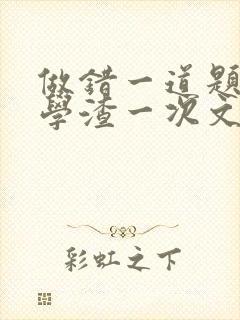 做錯一道題
學渣一次文
彩虹之下